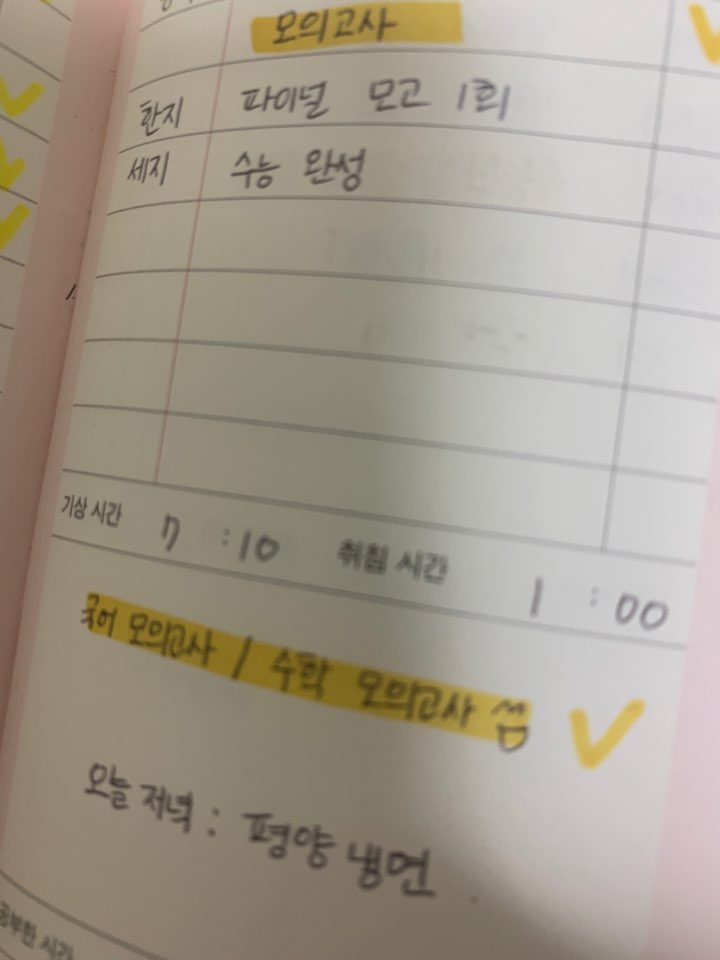 모의고사
한지 파이널 모고 1회
세지 수능 완성
기상 시간 7 : 10 취침 시간 1 : 00
국어 모의고사 / 수학 모의고사 씀
오늘 저녁 : 평양 냉면
공부한 시간